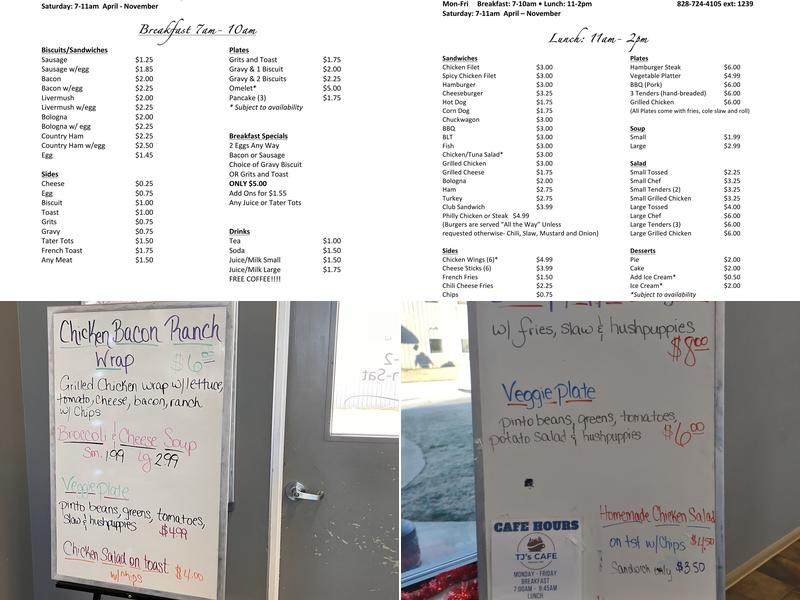 Saturday: 7-11am April - November
Breakfast 7am- 10am
Biscuits/Sandwiches
Sausage $1.25
Sausage w/egg $1.85
Bacon $2.00
Bacon w/egg $2.25
Livermush $2.00
Livermush w/egg $2.25
Bologna $2.00
Bologna w/ egg $2.25
Country Ham $2.25
Country Ham w/egg $2.50
Egg $1.45
Sides
Cheese $0.25
Egg $0.75
Biscuit $1.00
Toast $1.00
Grits $0.75
Gravy $0.75
Tater Tots $1.50
French Toast $1.75
Any Meat $1.50
Plates
Grits and Toast $1.75
Gravy & 1 Biscuit $2.00
Gravy & 2 Biscuits $2.25
Omelet* $5.00
Pancake (3) $1.75
* Subject to availability
Breakfast Specials
2 Eggs Any Way
Bacon or Sausage
Choice of Gravy Biscuit
OR Grits and Toast
ONLY $5.00
Add Ons for $1.55
Any Juice or Tater Tots
Drinks
Tea $1.00
Soda $1.50
Juice/Milk Small $1.50
Juice/Milk Large $1.75
FREE COFFEE!!!!
Mon-Fri Breakfast: 7-10am • Lunch: 11-2pm 828-724-4105 ext: 1239
Saturday: 7-11am April – November
Lunch: 11am- 2pm
Sandwiches
Chicken Filet $3.00
Spicy Chicken Filet $3.00
Hamburger $3.00
Cheeseburger $3.25
Hot Dog $1.75
Corn Dog $1.75
Chuckwagon $3.00
BBQ $3.00
BLT $3.00
Fish $3.00
Chicken/Tuna Salad* $3.00
Grilled Chicken $3.00
Grilled Cheese $1.75
Bologna $2.00
Ham $2.75
Turkey $2.75
Club Sandwich $3.99
Philly Chicken or Steak $4.99
(Burgers are served "All the Way" Unless
requested otherwise- Chili, Slaw, Mustard and Onion)
Sides
Chicken Wings (6)* $4.99
Cheese Sticks (6) $3.99
French Fries $1.50
Chili Cheese Fries $2.25
Chips $0.75
Plates
Hamburger Steak $6.00
Vegetable Platter $4.99
BBQ (Pork) $6.00
3 Tenders (hand-breaded) $6.00
Grilled Chicken $6.00
(All Plates come with fries, cole slaw and roll)
Soup
Small $1.99
Large $2.99
Salad
Small Tossed $2.25
Small Chef $3.25
Small Tenders (2) $3.25
Small Grilled Chicken $3.25
Large Tossed $4.00
Large Chef $6.00
Large Tenders (3) $6.00
Large Grilled Chicken $6.00
Desserts
Pie $2.00
Cake $2.00
Add Ice Cream* $0.50
Ice Cream* $2.00
*Subject to availability
Chicken Bacon Ranch
Wrap $6.00
Grilled Chicken wrap w/lettuce,
tomato, cheese, bacon, ranch
w/ Chips
Broccoli & Cheese Soup
Sm. 1.99 lg 2.99
Veggie Plate
Pinto beans, greens, tomatoes,
Slaw & hushpuppies
$4.99
Chicken Salad on toast
w/chips $4.00
w/ fries, slaw & hushpuppies
$8.00
Veggie Plate
pinto beans, greens, tomatoes,
potato salad & hushpuppies $6.00
Homemade Chicken Salad
on tst w/Chips $4.50
Sandwich only $3.50
CAFE HOURS
TJ's CAFE
MONDAY - FRIDAY
BREAKFAST
7:00AM - 9:45AM
LUNCH